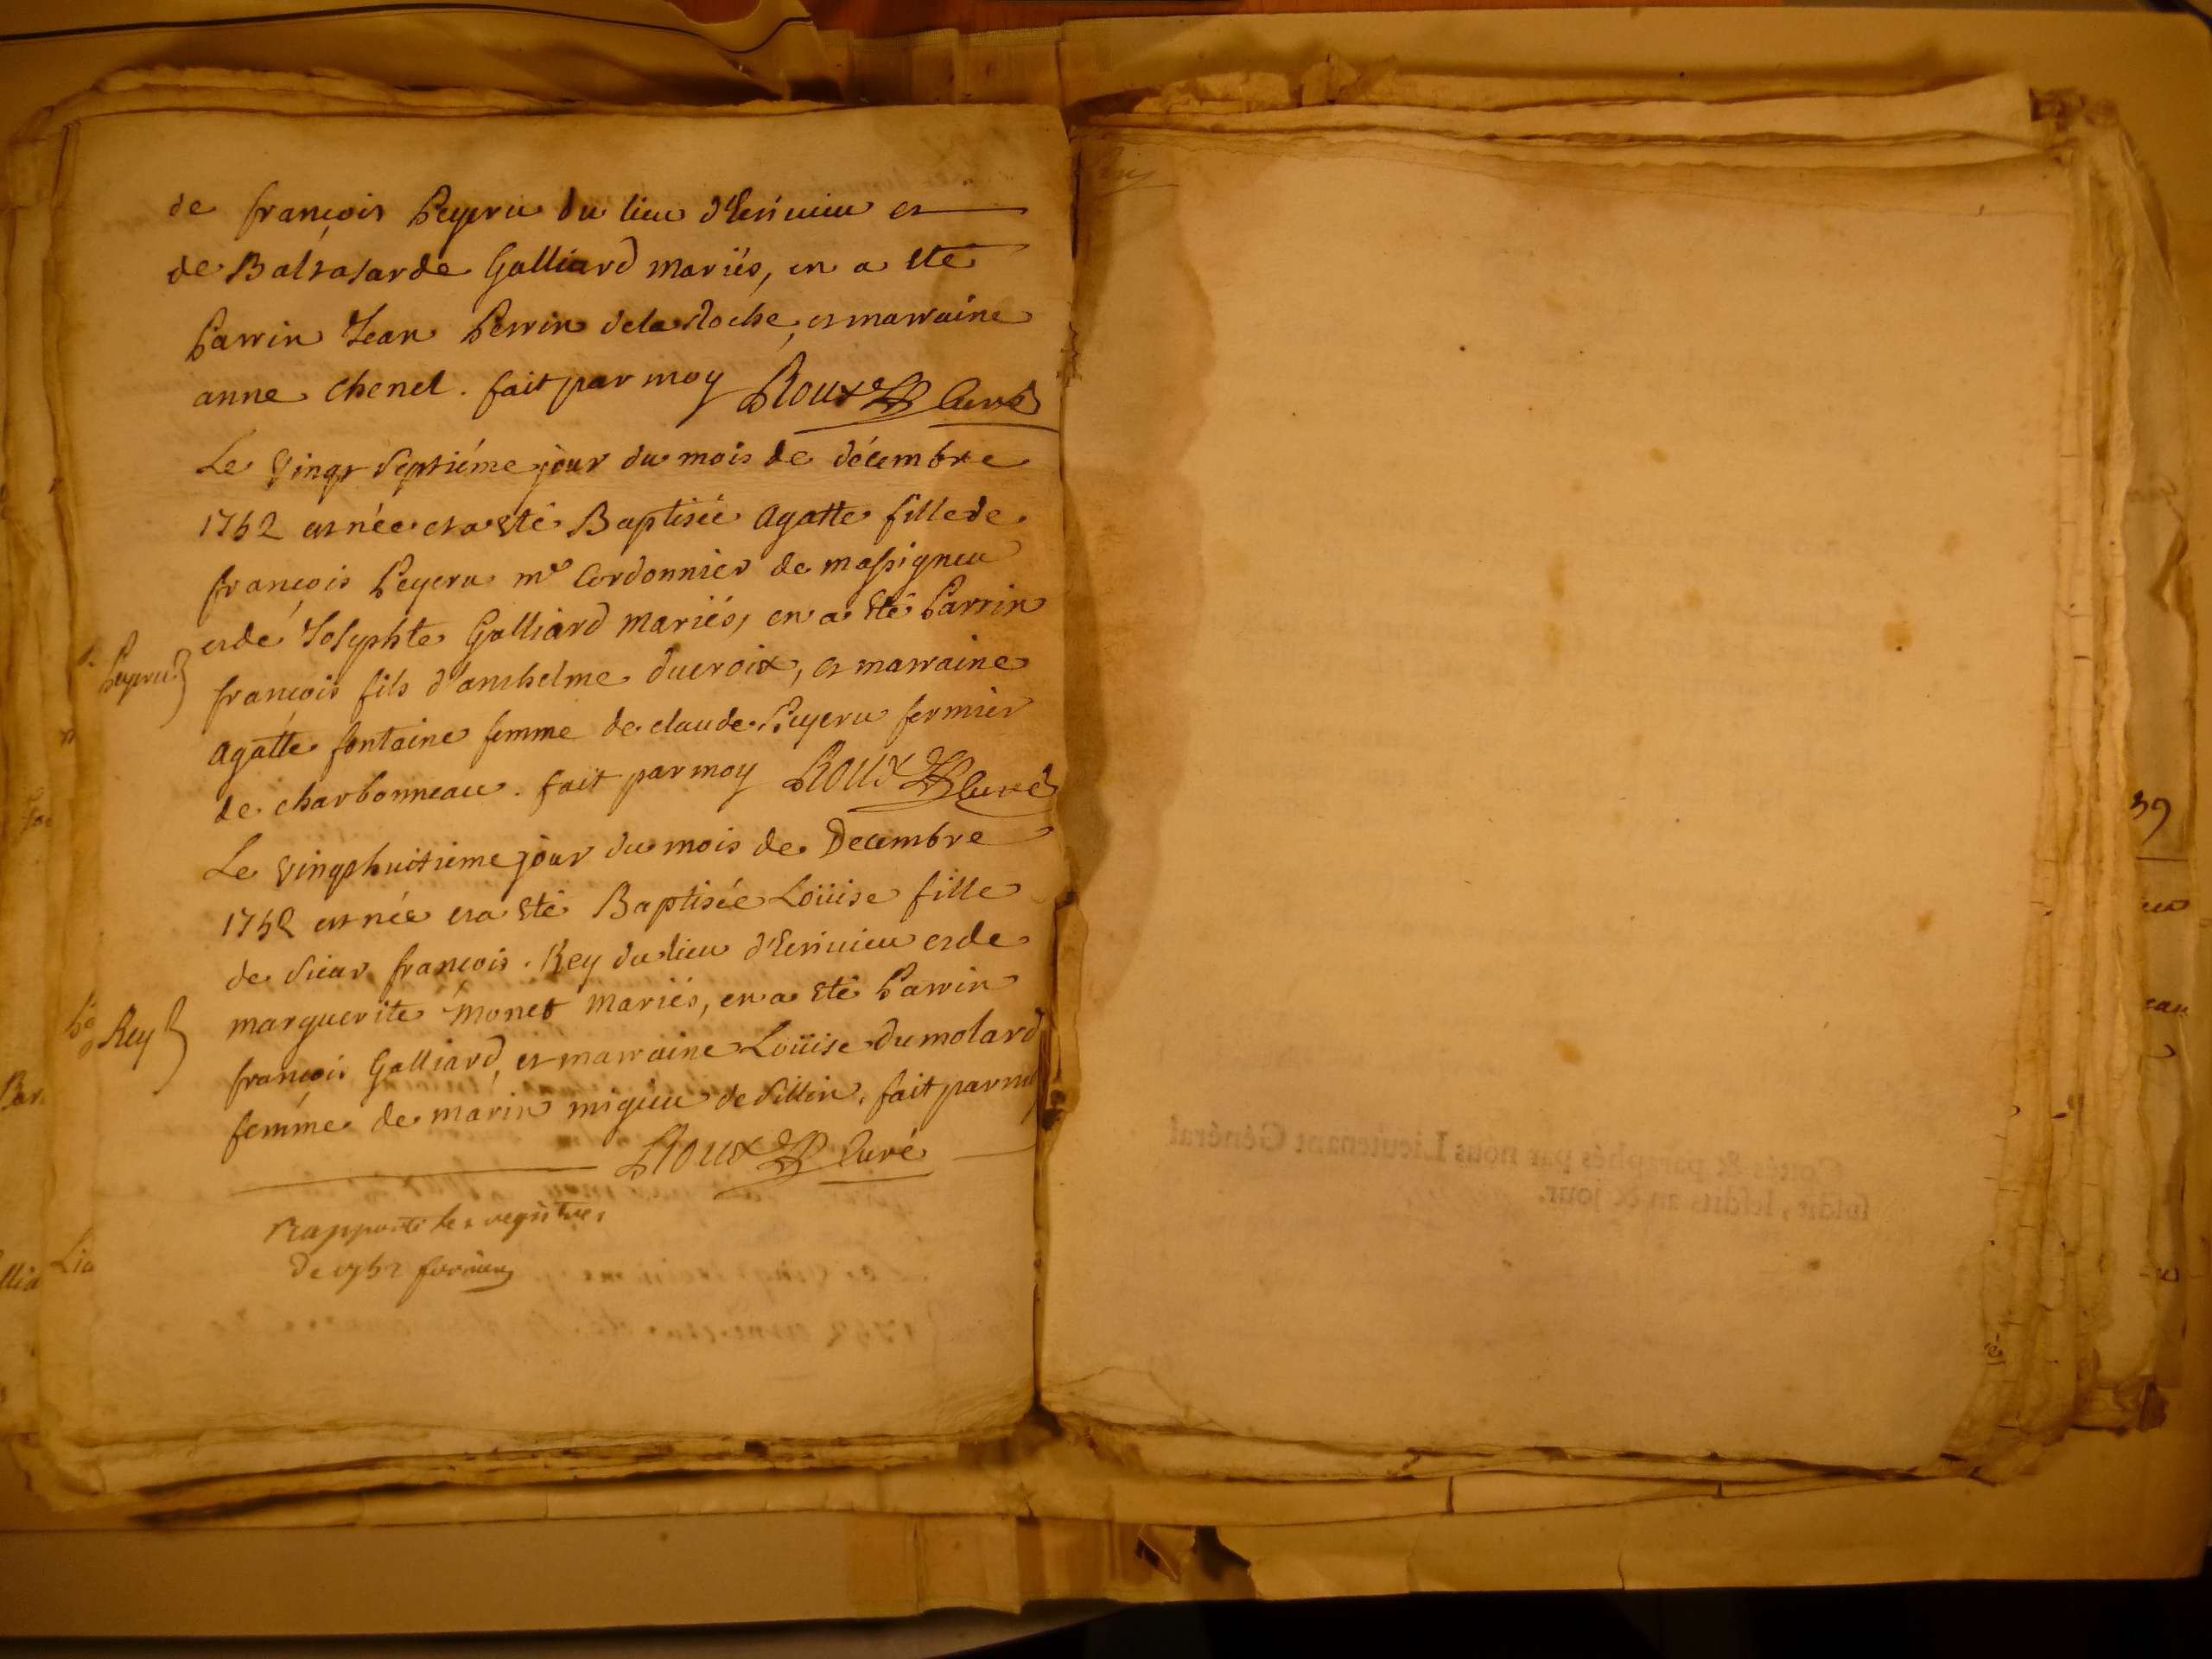 de françois Peyeru du lieu d'Ecrivieu et
de Baltasarde Galliard mariés, en a eté
Parrin Jean Perrin de la Roche, et marraine
anne Chenel. fait par moy Roux Curé
Le Vingt Septiéme jour du mois de décembre
1752 est née et a eté Baptisée Agatte fille de
françois Peyeru me Cordonnier de massigneu
et de Josephte Galliard mariés, en a eté Parrin
Peyeru
françois fils d'anthelme ducroix, et marraine
Agatte fontaine femme de claude Peyeru fermier
de charbonneau. fait par moy Roux Curé
Le vingt huitieme jour du mois de Decembre
1752 est née et a eté Baptisée Loüise fille
de Sieur françois Rey du lieu d'Ecrivieu et de
marguerite monet mariés, en a eté Parrin
Rey
françois Galliard, et marraine Loüise dumolard
femme de marin miguieu de Sillin. fait par moy
Roux Curé
Rapporté les registres
de 1752
39
Cottés & paraphés par nous Lieutenant Général
susdit, lesdits an & jour.